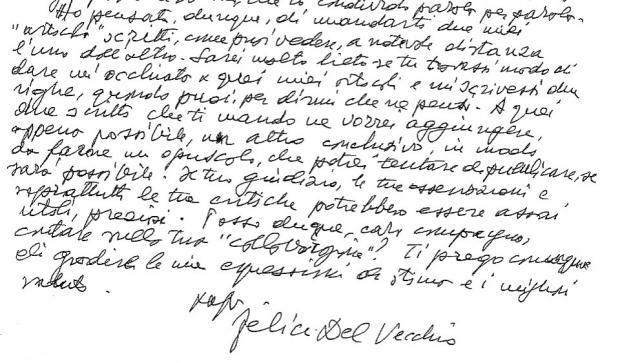 che io condivido parola per parola.
Ho pensato, dunque, di mandarti due miei
"articoli" scritti, come puoi vedere, a notevole distanza
l'uno dall'altro. Sarei molto lieto se tu trovassi modo di
dare un'occhiata a quei miei articoli e mi scrivessi due
righe, quando puoi, per dirmi che ne pensi. A quei
due scritti che ti mando ne vorrei aggiungere,
appena possibile, un altro conclusivo, in modo
da farne un opuscolo, che potrei tentare di pubblicare, se
sarà possibile. Il tuo giudizio, le tue osservazioni e
soprattutto le tue critiche potrebbero essere assai
utili, preziosi. Posso dunque, caro compagno,
contare sulla tua "collaborazione"? Ti prego comunque
di gradire le mie espressioni di stima e i migliori
saluti.
Felice Del Vecchio